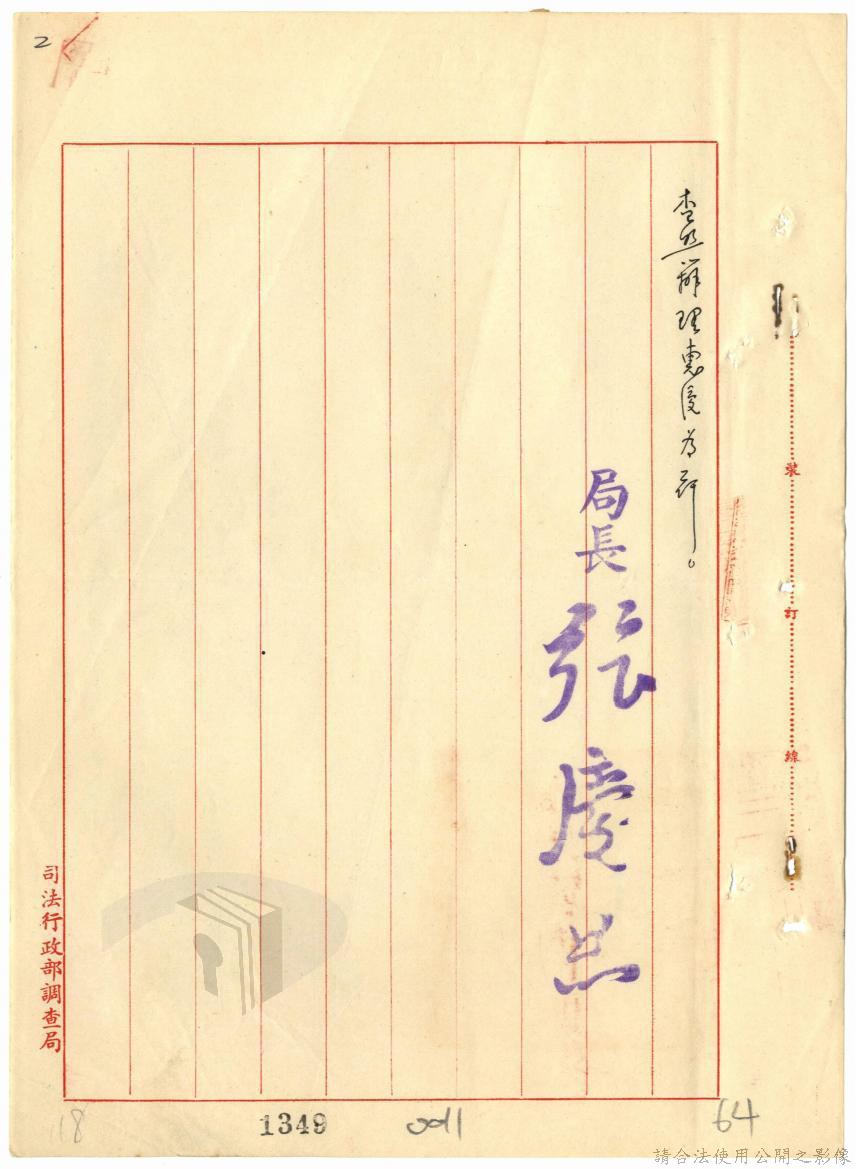 2
查照辦理惠復為荷。
局長 張慶恩
裝
訂
線
司法行政部調查局
18
1349
0011
64
請合法使用公開之影像